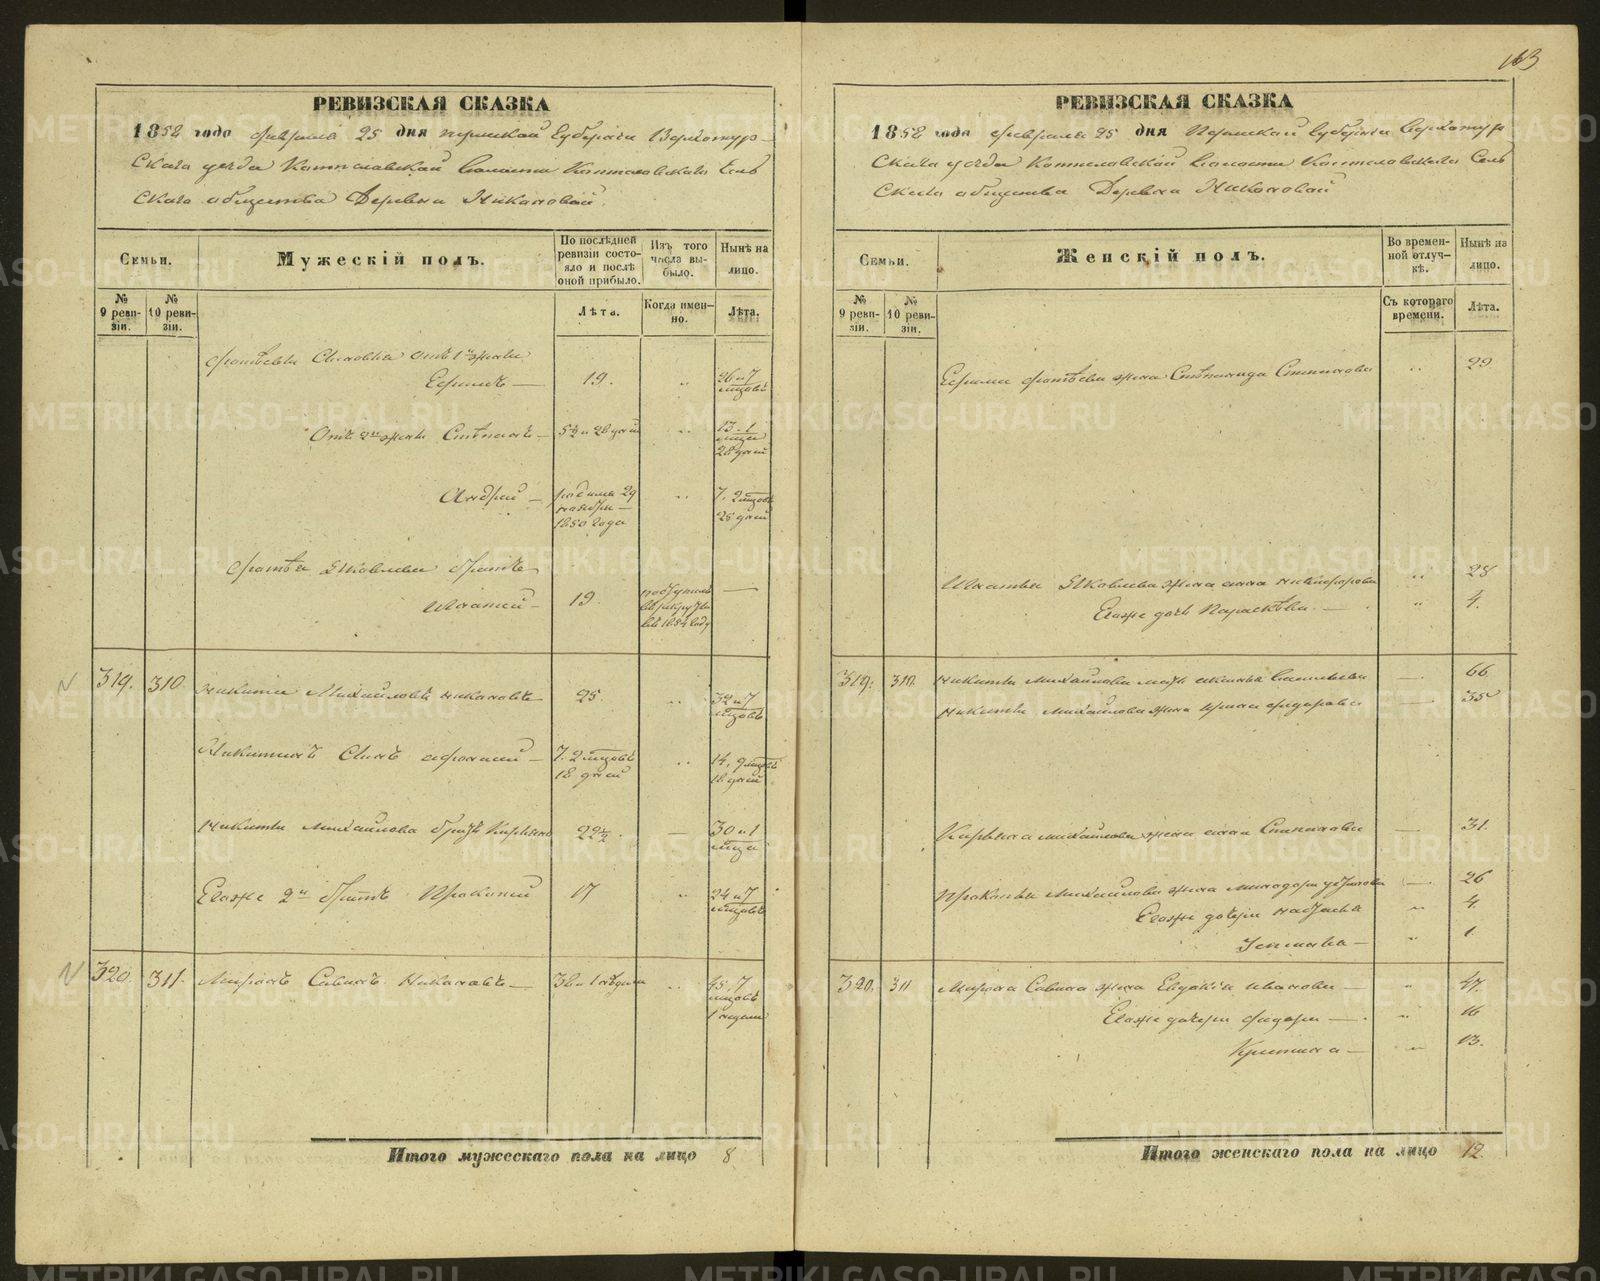 163
РЕВИЗСКАЯ СКАЗКА
1858 года февраля 25 дня Пермской Губернiи Верхотур-
скаго уезда Коптеловской Волости Коптеловскаго Сель
скаго общества Деревни Никоновой
Семьи.
Мужескiй полъ.
По послѣдней ревизiи состояло и послѣ оной прибыло.
Изъ того числа выбыло.
Нынѣ на лицо.
№ 9 ревизiи.
№ 10 ревизiи.
Лѣта.
Когда именно.
Лѣта.
Фотѣевы Сыновья отъ 1й жены
Ефимъ — 19. „ 26 и 7 мцовъ
Отъ 2й жены Степанъ — 5½ и 28 дней „ 13. 1 мцъ 28 дней
Андрей — родился 29 ноября 1850 года „ 7. 2 мцовъ 25 дней
Фотѣя Яковлева братъ
Игнатей — 19 поступилъ въ рекруты въ 1854 году —
319. 310. Никита Михайловъ Никоновъ — 25 „ 32 и 7 мцовъ
Никитинъ Сынъ Афонасий — 7. 2 мцовъ 18 дней „ 14, 9 мцовъ 18 дней
Никиты Михайлова братъ Кирьянъ 22½ — 30 и 1 мцъ
Егоже 2й братъ Прокопий 17 „ 24 и 7 мцовъ
320. 311. Миронъ Савинъ Никоновъ — 38 и 1 неделя „ 45, 7 мцовъ 1 неделя
Итого мужескаго пола на лицо 8
РЕВИЗСКАЯ СКАЗКА
1858 года февраля 25 дня Пермской Губернiи Верхотур
скаго уезда Коптеловской Волости Коптеловскаго Сель
скаго общества Деревни Никоновой
Семьи.
Женскiй полъ.
Во временной отлучкѣ.
Нынѣ на лицо.
№ 9 ревизiи.
№ 10 ревизiи.
Съ котораго времени.
Лѣта.
Ефима Фотѣева жена Степанида Степанова „ 29
Игнатья Яковлева жена Анна Никифорова „ 28
Егоже дочь Парасковья — „ 4.
319. 310. Никиты Михайлова мать Васильева — 66
Никиты Михайлова жена Ирина Федорова — 35
Кирьяна Михайлова жена Анна Степанова — 31.
Прокопья Михайлова жена — 26
Егоже дочери Настасья „ 4.
Устинья — „ 1.
320. 311 Мирона Савина жена Евдокiя Иванова — „ 47.
Егоже дочери Федора — „ 16
„ 13.
Итого женскаго пола на лицо 12
METRIKI.GASO-URAL.RU